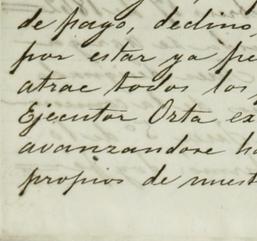 de pago, declino,
por estar ya pe
atrae todos los
Ejecutor Orta ex
avanzandose ha
propios de nuest